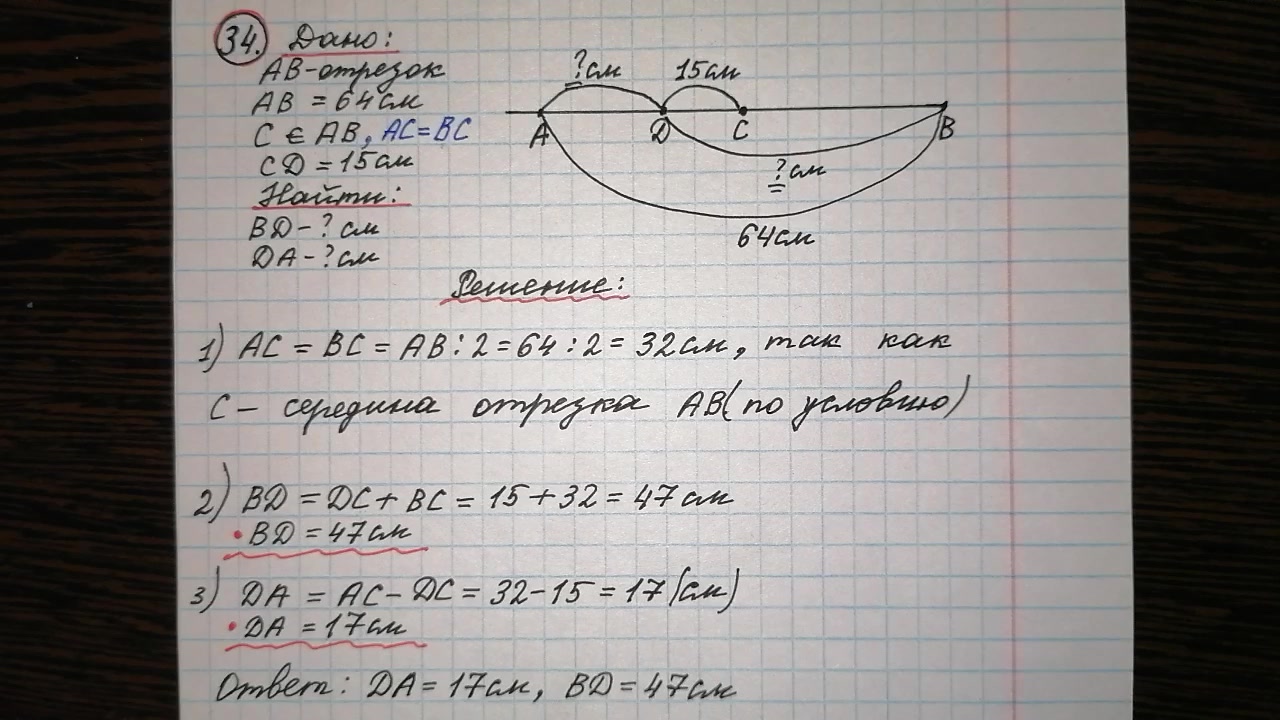 34. Дано:
AB-отрезок
AB = 64см
C ∈ AB, AC=BC
CD = 15см
Найти:
BD-? см
DA-? см
?см 15см
A D C B
?см
64см
Решение:
1) AC = BC = AB : 2 = 64 : 2 = 32см, так как
C - середина отрезка AB (по условию)
2) BD = DC + BC = 15 + 32 = 47 см
• BD = 47см
3) DA = AC - DC = 32 - 15 = 17 (см)
• DA = 17см
Ответ: DA = 17см, BD = 47см